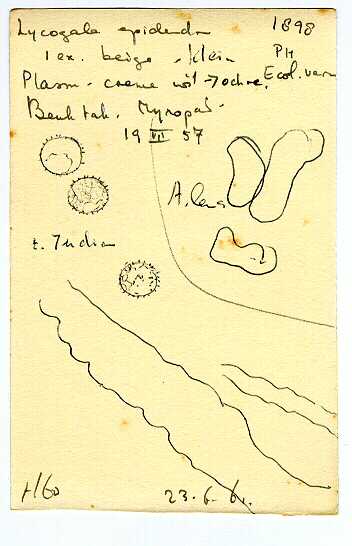 Lycogala epidendr 1898
1 ex. beige - klein PH
Plasm - creme wit → ochre. Ecol. vern
Beuk tak.
19 VII 57
A.
t. Indian
H60 23.6.61.